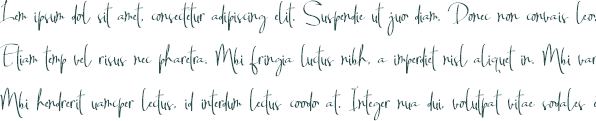 Lem ipsum dol sit amet, consectetur adipiscing elit. Suspendie ut juo diam. Donec non convais leo
Etiam temp vel risus nec pharetra. Mbi fringia luctus nibh, a imperdiet nisl aliquet in. Mbi var
Mbi hendrerit uamcper lectus, id interdum lectus coodo at. Integer nua dui, volutpat vitae sodales